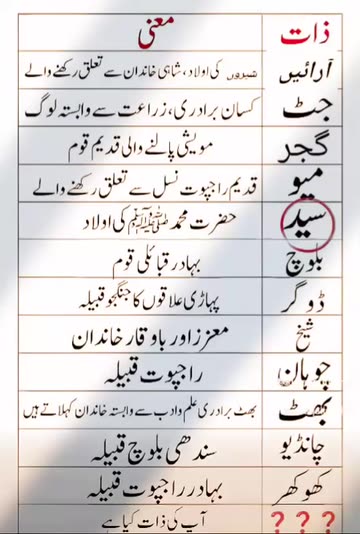 ذات معنی
آرائیں شیروں کی اولاد، شاہی خاندان سے تعلق رکھنے والے
جٹ کسان برادری، زراعت سے وابستہ لوگ
گجر مویشی پالنے والی قدیم قوم
میو قدیم راجپوت نسل سے تعلق رکھنے والے
سید حضرت محمد ﷺ کی اولاد
بلوچ بہادر قبائلی قوم
ڈوگر پہاڑی علاقوں کا جنگجو قبیلہ
شیخ معزز اور باوقار خاندان
چوہان راجپوت قبیلہ
بھٹ بھٹ برادری علم و ادب سے وابستہ خاندان کہلاتے ہیں
چانڈیو سندھی بلوچ قبیلہ
کھوکھر بہادر راجپوت قبیلہ
? ? ? آپ کی ذات کیا ہے